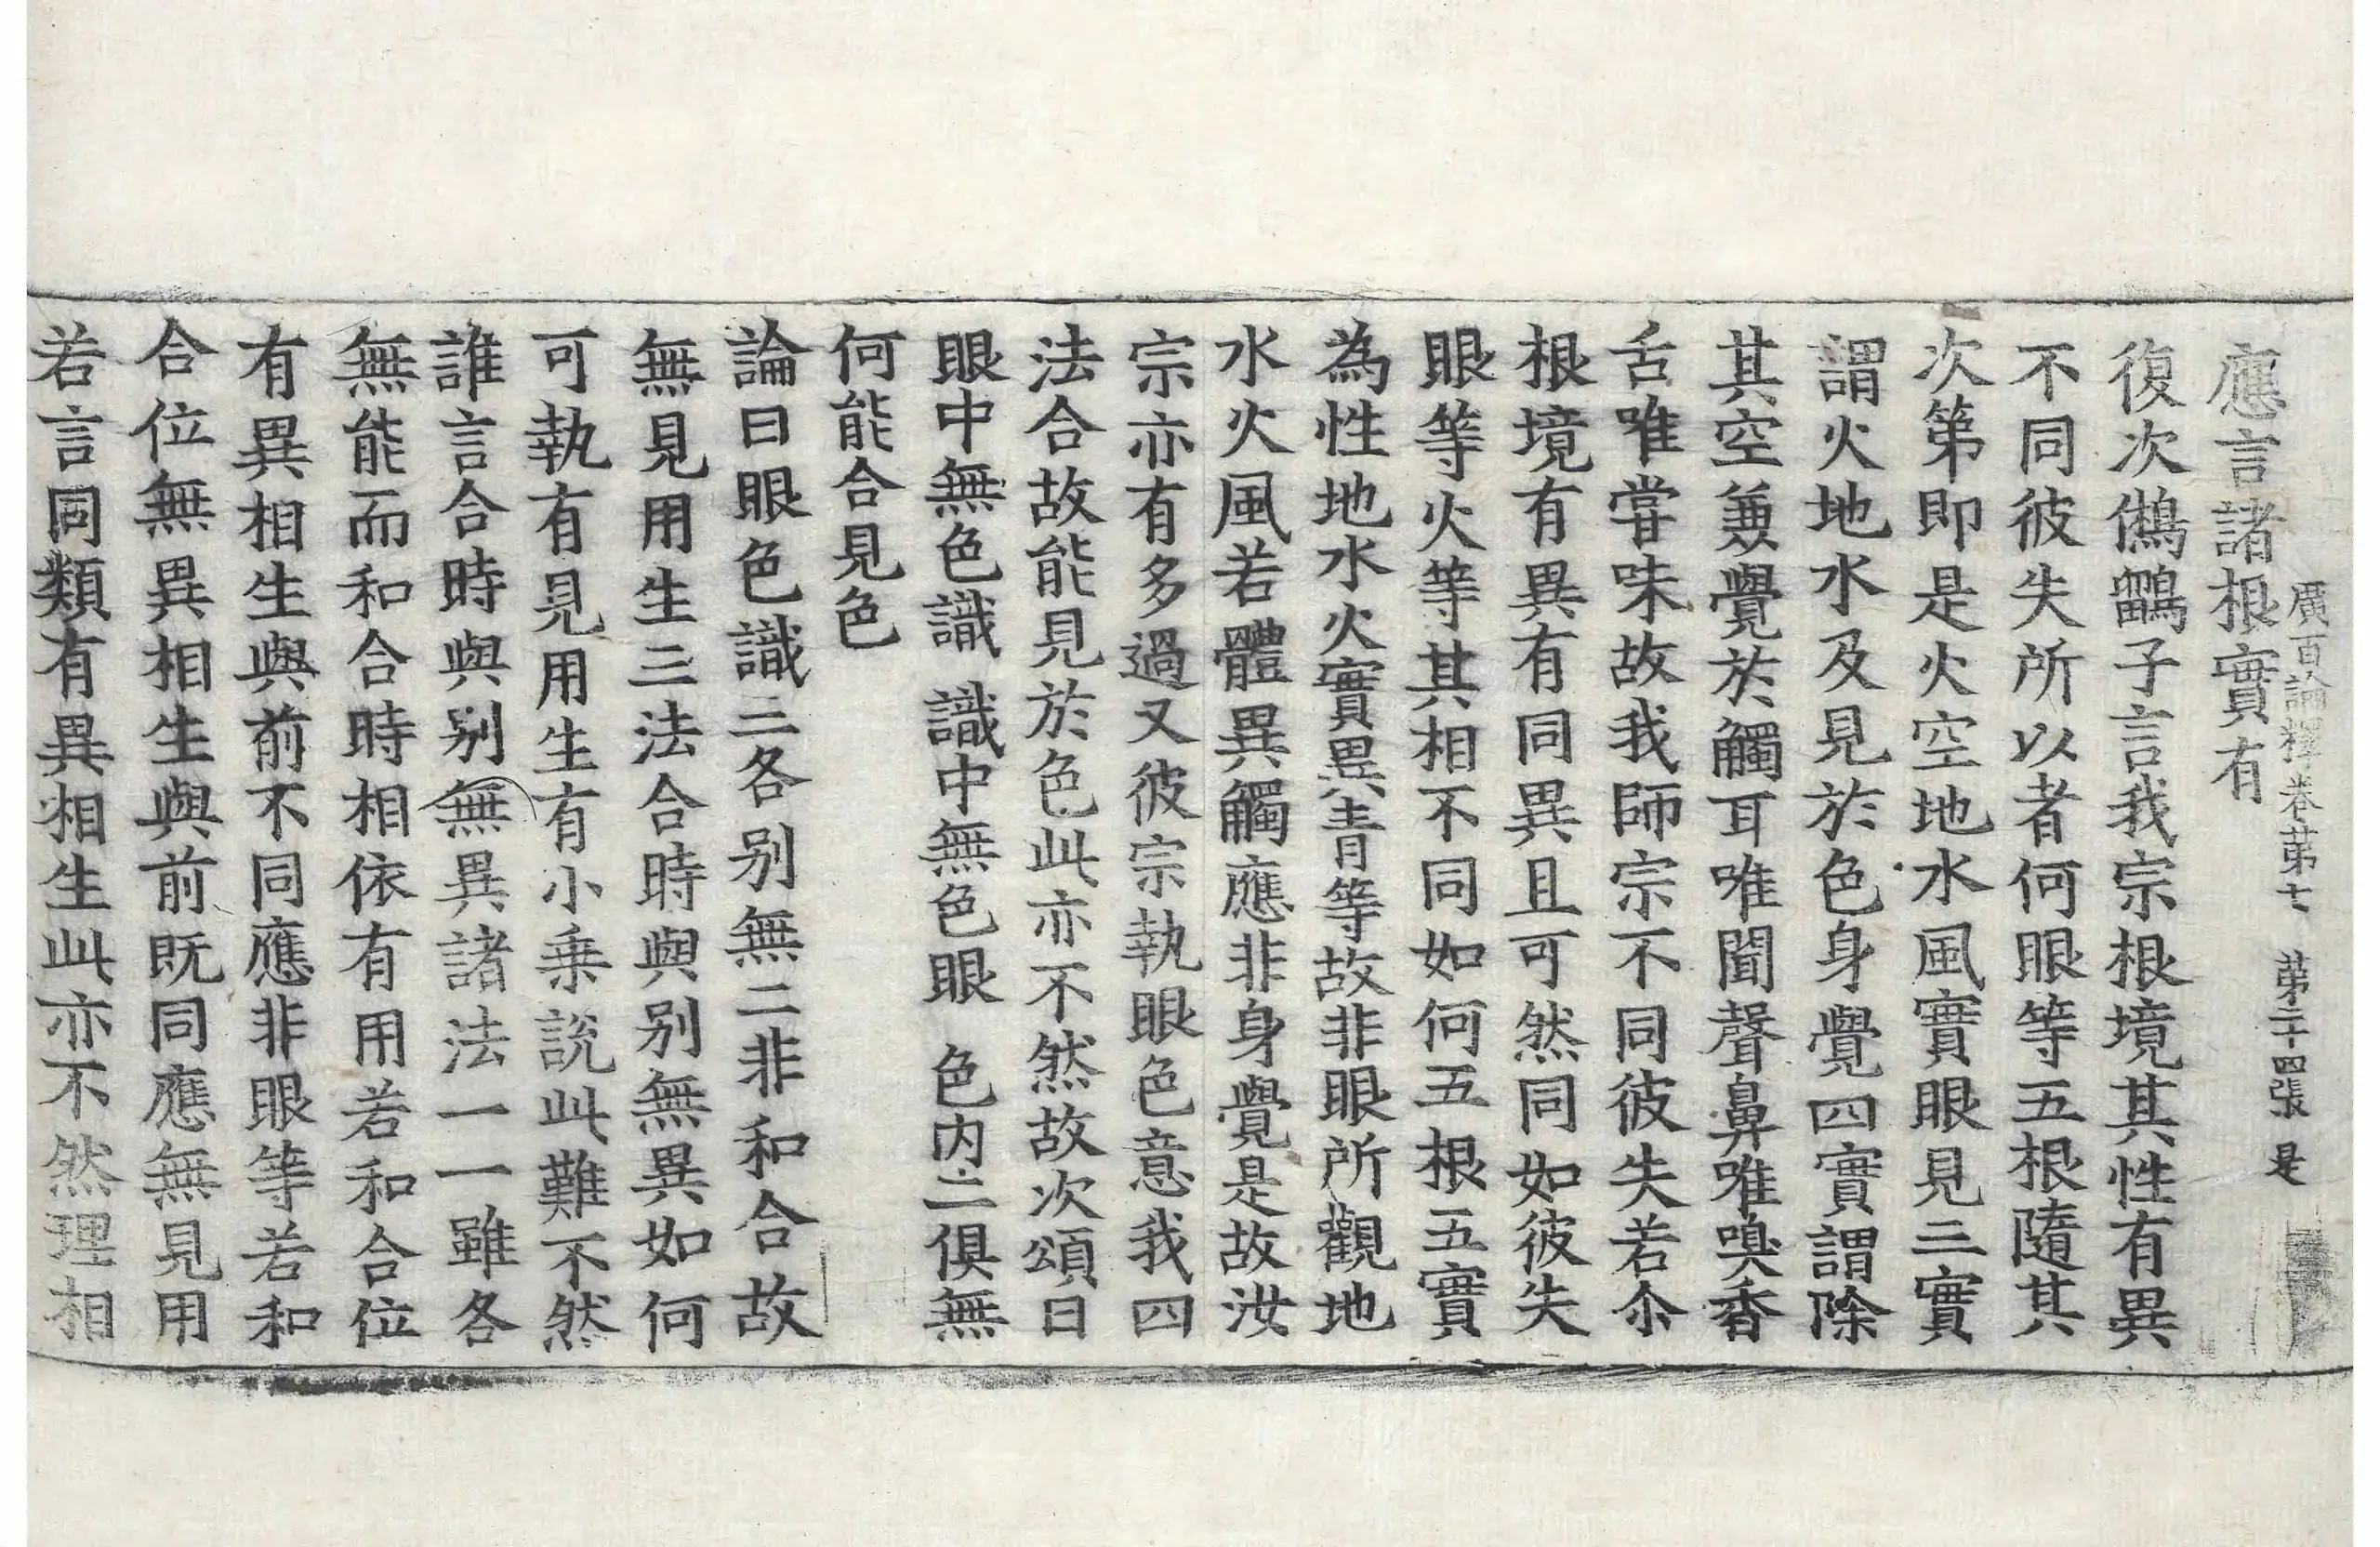 廣百論釋卷苐七 苐二十四張 是
應言諸根實有
復次鵂鶹子言我宗根境其性有異
不同彼失所以者何眼等五根隨其
次第即是火空地水風實眼見三實
謂火地水及見於色身覺四實謂除
其空兼覺於觸耳唯聞聲鼻唯嗅香
舌唯甞味故我師宗不同彼失若尒
根境有異有同異且可然同如彼失
眼等火等其相不同如何五根五實
為性地水火實異青等故非眼所觀地
水火風若體異觸應非身覺是故汝
宗亦有多過又彼宗執眼色意我四
法合故能見於色此亦不然故次頌曰
眼中無色識 識中無色眼 色内二俱無
何能合見色
論曰眼色識三各别無二非和合故
無見用生三法合時與别無異如何
可執有見用生有小乗說此難不然
誰言合時與别無異諸法一一雖各
無能而和合時相依有用若和合位
有異相生與前不同應非眼等若和
合位無異相生與前既同應無見用
若言同類有異相生此亦不然理相